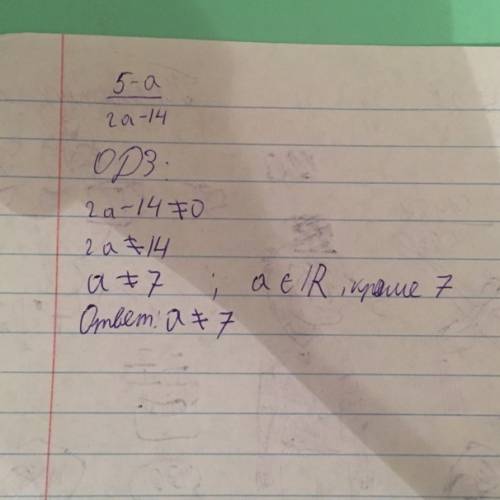 5-a
2a-14
ОДЗ:
2a-14≠0
2a≠14
a≠7 ; a∈R, кроме 7
Ответ: a≠7